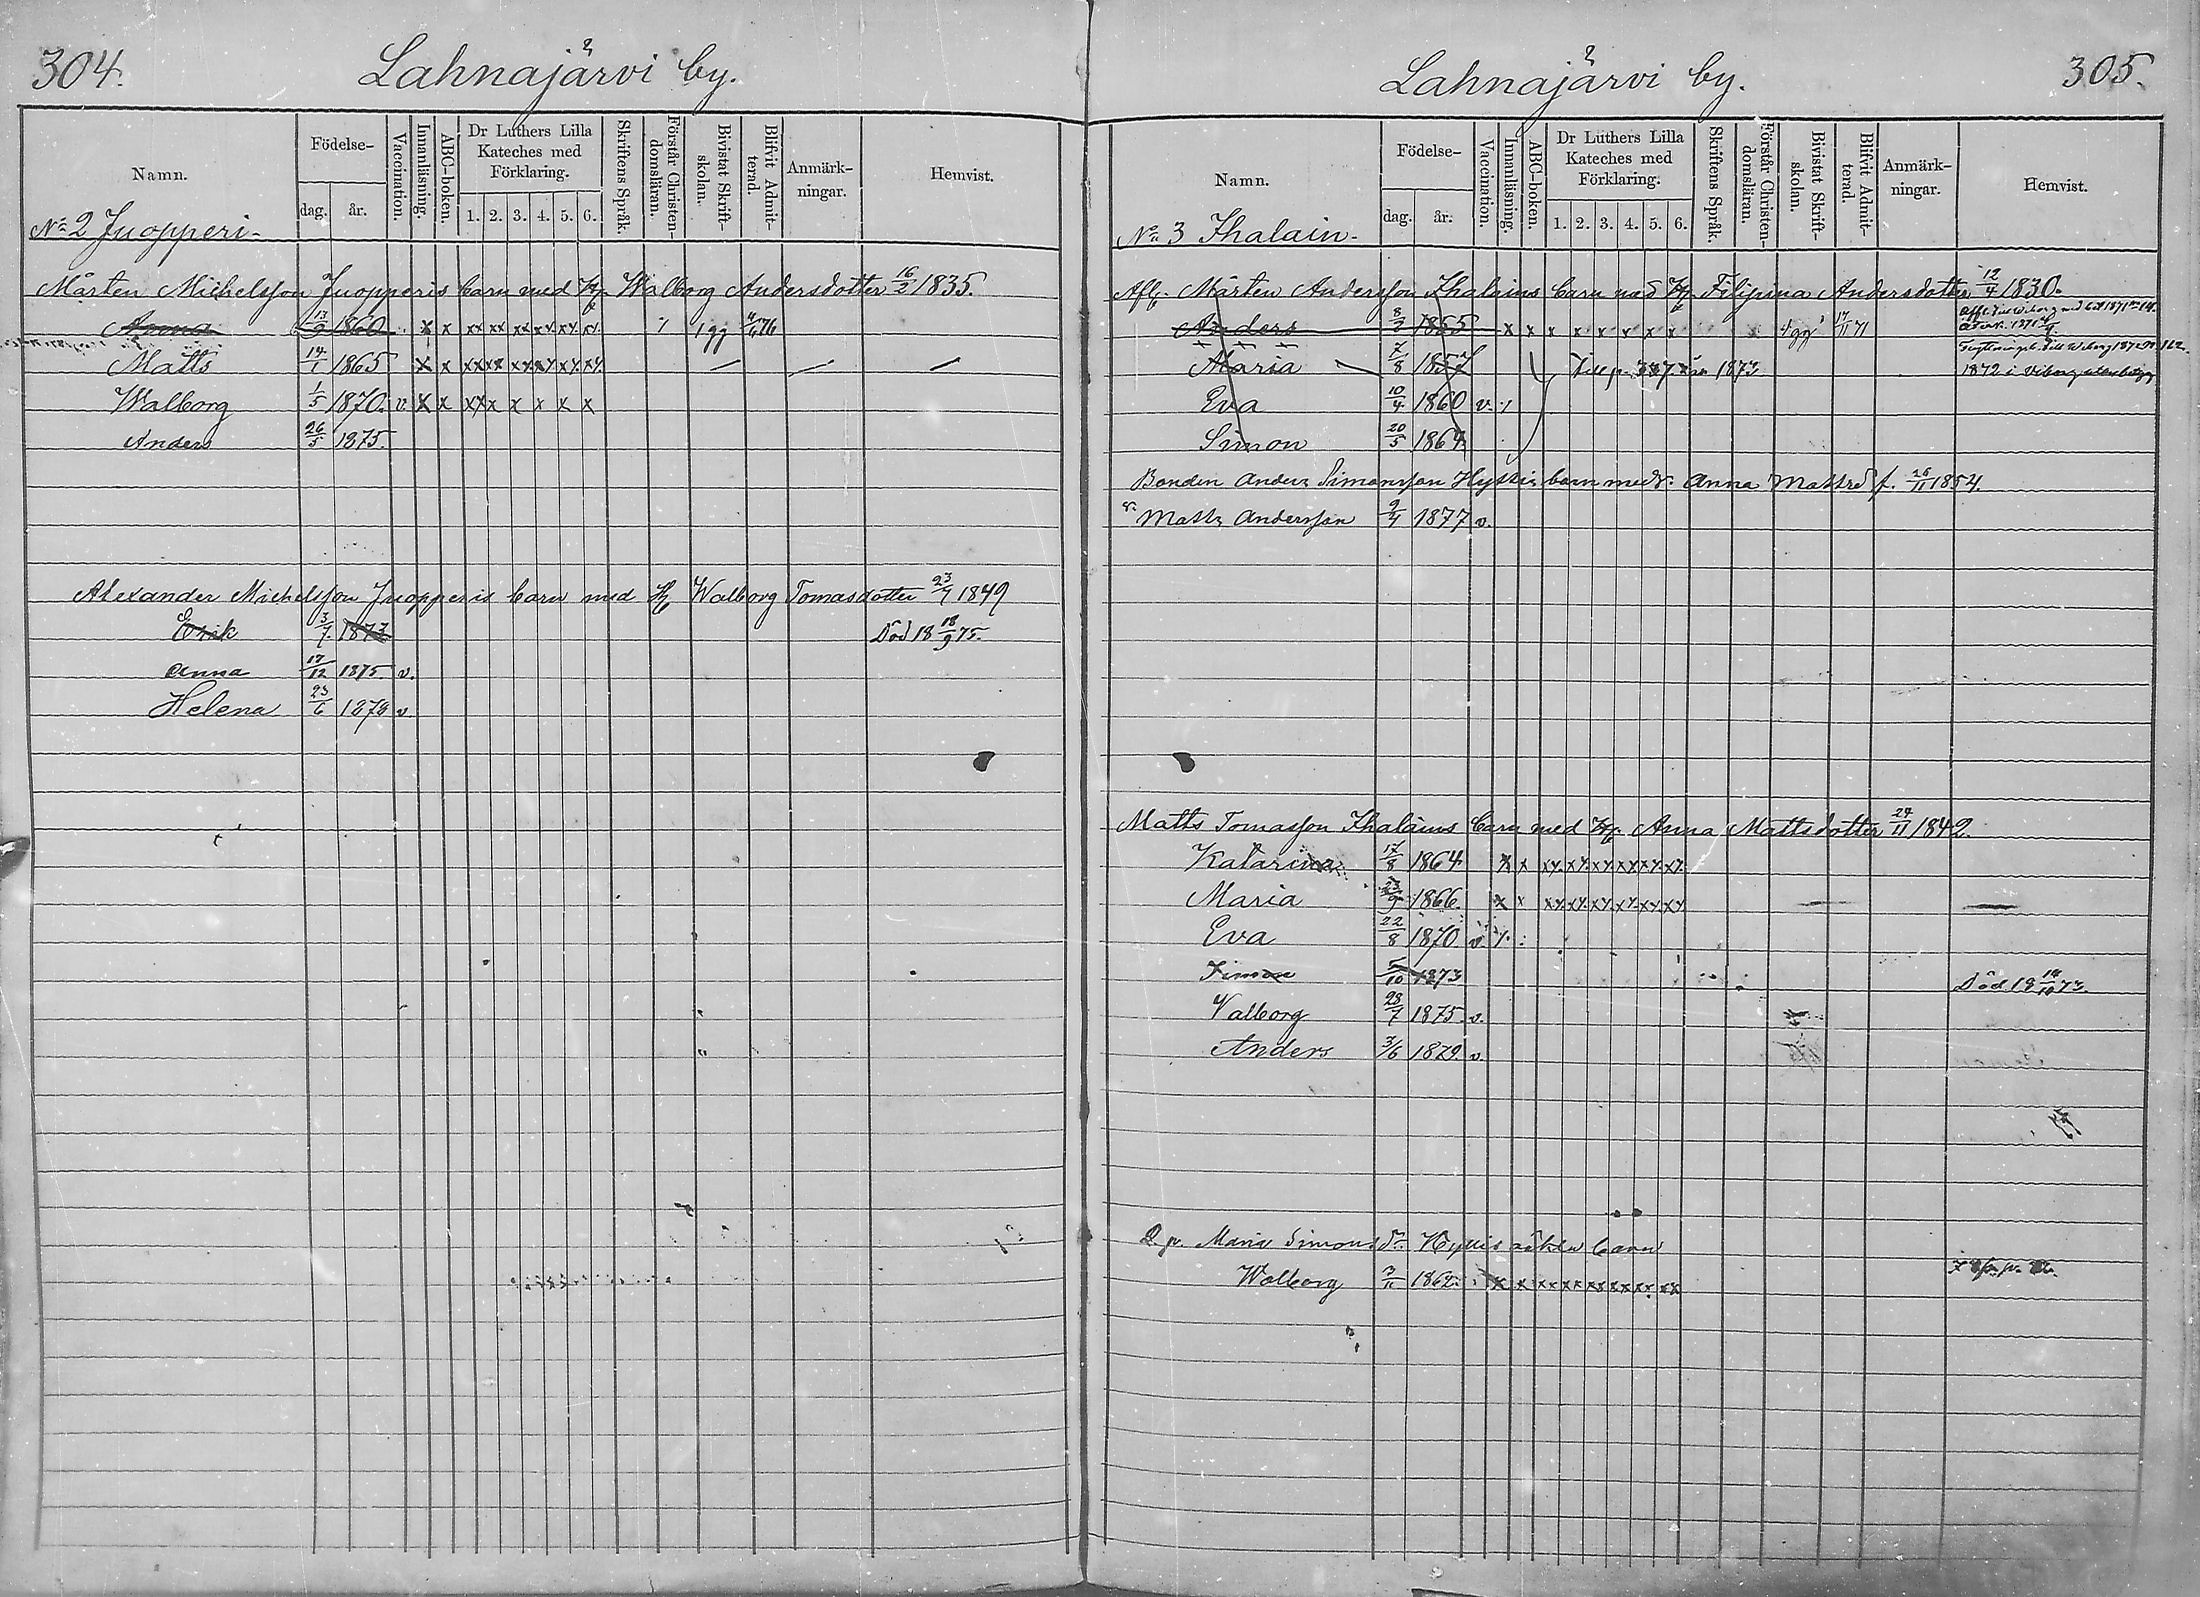 304. Lahnajärvi by.
Namn. Födelse- dag. år. Vaccination. Innanläsning. ABC-boken. Dr Luthers Lilla Kateches med Förklaring. 1. 2. 3. 4. 5. 6. Skriftens Språk. Förstår Christendomsläran. Bivistat Skriftskolan. Blifvit Admitterad. Anmärkningar. Hemvist.
No 2 Juopperi.
Mårten Michelsson Juopperis barn med H. Walborg Andersdotter 16/2 1835.
Anna 1860 x x xx xx xx xx xx xx 1 gg 76
Matts 14/1 1865 x x xx xx xx xx xx xx
Walborg 1/5 1870. v. x x xx x x x x x
Anders 26/5 1875.
Alexander Michelsson Juopperis barn med H. Walborg Tomasdotter 23/7 1849
Erik 3/7 1873 Död 18 18/9 75.
Anna 17/12 1875 v.
Helena 23/6 1878 v.
Lahnajärvi by. 305.
Namn. Födelse- dag. år. Vaccination. Innanläsning. ABC-boken. Dr Luthers Lilla Kateches med Förklaring. 1. 2. 3. 4. 5. 6. Skriftens Språk. Förstår Christendomsläran. Bivistat Skriftskolan. Blifvit Admitterad. Anmärkningar. Hemvist.
No 3 Ihalain.
Afl. Mårten Andersson Ihalains barn med H. Filipina Andersdotter 12/4 1830.
Anders 8/3 1855 x x x x x x x x x gg 17/11 71
Maria 7/8 1857 1873 1872 i Viborg
Eva 10/4 1860 v.
Simon 20/5 1864
Bonden Anders Simonsson Hyttis barn med h. Anna Mattsd f. 26/11 1854.
Matts Andersson 9/4 1877 v.
Matts Tomasson Ihalains barn med H. Anna Mattsdotter 24/11 1842.
Katarina 17/8 1864 x x xx xx xx xx xx xx
Maria 23/9 1866. x x xx xx xx xx xx xx
Eva 22/8 1870 v.
Simon 5/10 1873 Död 18 14/10 73.
Valborg 28/7 1875. v.
Anders 3/6 1879. v.
Maria Simons dr Hyttis oäkta barn
Walborg 3/11 1862. x x xx xx xx xx xx xx